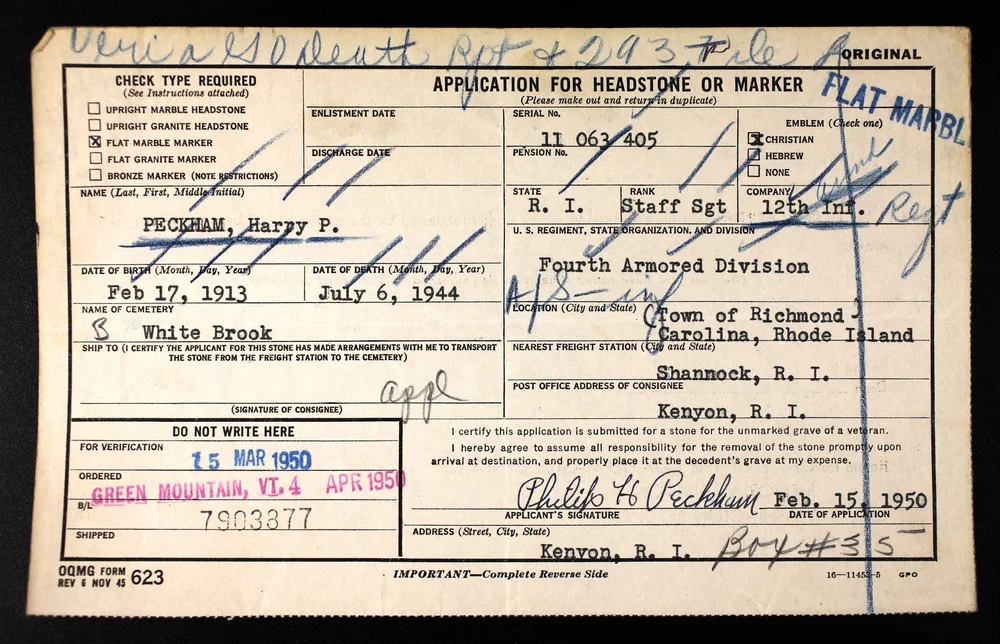 Veri a GO Death Rpt & 293 File
ORIGINAL
FLAT MARBL
CHECK TYPE REQUIRED
(See Instructions attached)
UPRIGHT MARBLE HEADSTONE
UPRIGHT GRANITE HEADSTONE
X FLAT MARBLE MARKER
FLAT GRANITE MARKER
BRONZE MARKER (NOTE RESTRICTIONS)
APPLICATION FOR HEADSTONE OR MARKER
(Please make out and return in duplicate)
ENLISTMENT DATE
DISCHARGE DATE
SERIAL No.
11 063 405
PENSION No.
EMBLEM (Check one)
X CHRISTIAN
HEBREW
NONE
NAME (Last, First, Middle Initial)
PECKHAM, Harry P.
STATE
R. I.
RANK
Staff Sgt
COMPANY
12th Inf. Regt
U. S. REGIMENT, STATE ORGANIZATION, AND DIVISION
Fourth Armored Division
A/S - inf
DATE OF BIRTH (Month, Day, Year)
Feb 17, 1913
DATE OF DEATH (Month, Day, Year)
July 6, 1944
NAME OF CEMETERY
B White Brook
LOCATION (City and State)
(Town of Richmond)
Carolina, Rhode Island
SHIP TO (I CERTIFY THE APPLICANT FOR THIS STONE HAS MADE ARRANGEMENTS WITH ME TO TRANSPORT
THE STONE FROM THE FREIGHT STATION TO THE CEMETERY)
appl
(SIGNATURE OF CONSIGNEE)
NEAREST FREIGHT STATION (City and State)
Shannock, R. I.
POST OFFICE ADDRESS OF CONSIGNEE
Kenyon, R. I.
DO NOT WRITE HERE
FOR VERIFICATION
15 MAR 1950
ORDERED
GREEN MOUNTAIN, VT. 4 APR 1950
B/L
7903877
SHIPPED
I certify this application is submitted for a stone for the unmarked grave of a veteran.
I hereby agree to assume all responsibility for the removal of the stone promptly upon
arrival at destination, and properly place it at the decedent's grave at my expense.
Philip H Peckham Feb. 15, 1950
APPLICANT'S SIGNATURE DATE OF APPLICATION
ADDRESS (Street, City, State)
Kenyon, R. I. Box #35
OQMG FORM
REV 6 NOV 45 623
IMPORTANT—Complete Reverse Side
16—11453-5 GPO